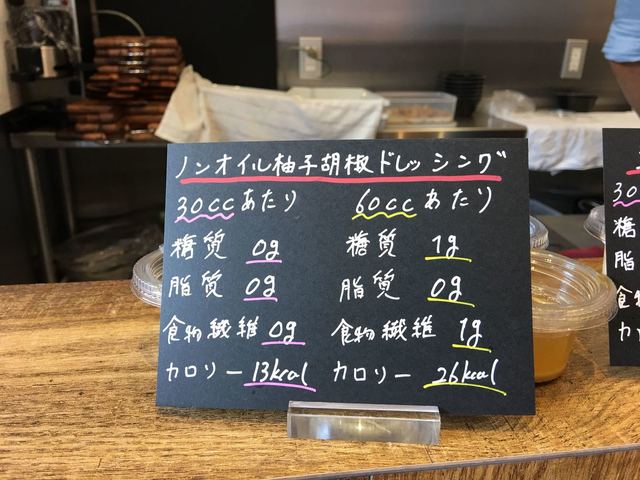 ノンオイル柚子胡椒ドレッシング
30cc あたり 60cc あたり
糖質 0g 糖質 1g
脂質 0g 脂質 0g
食物繊維 0g 食物繊維 1g
カロリー 13kcal カロリー 26kcal
30
糖
脂
食
カロ